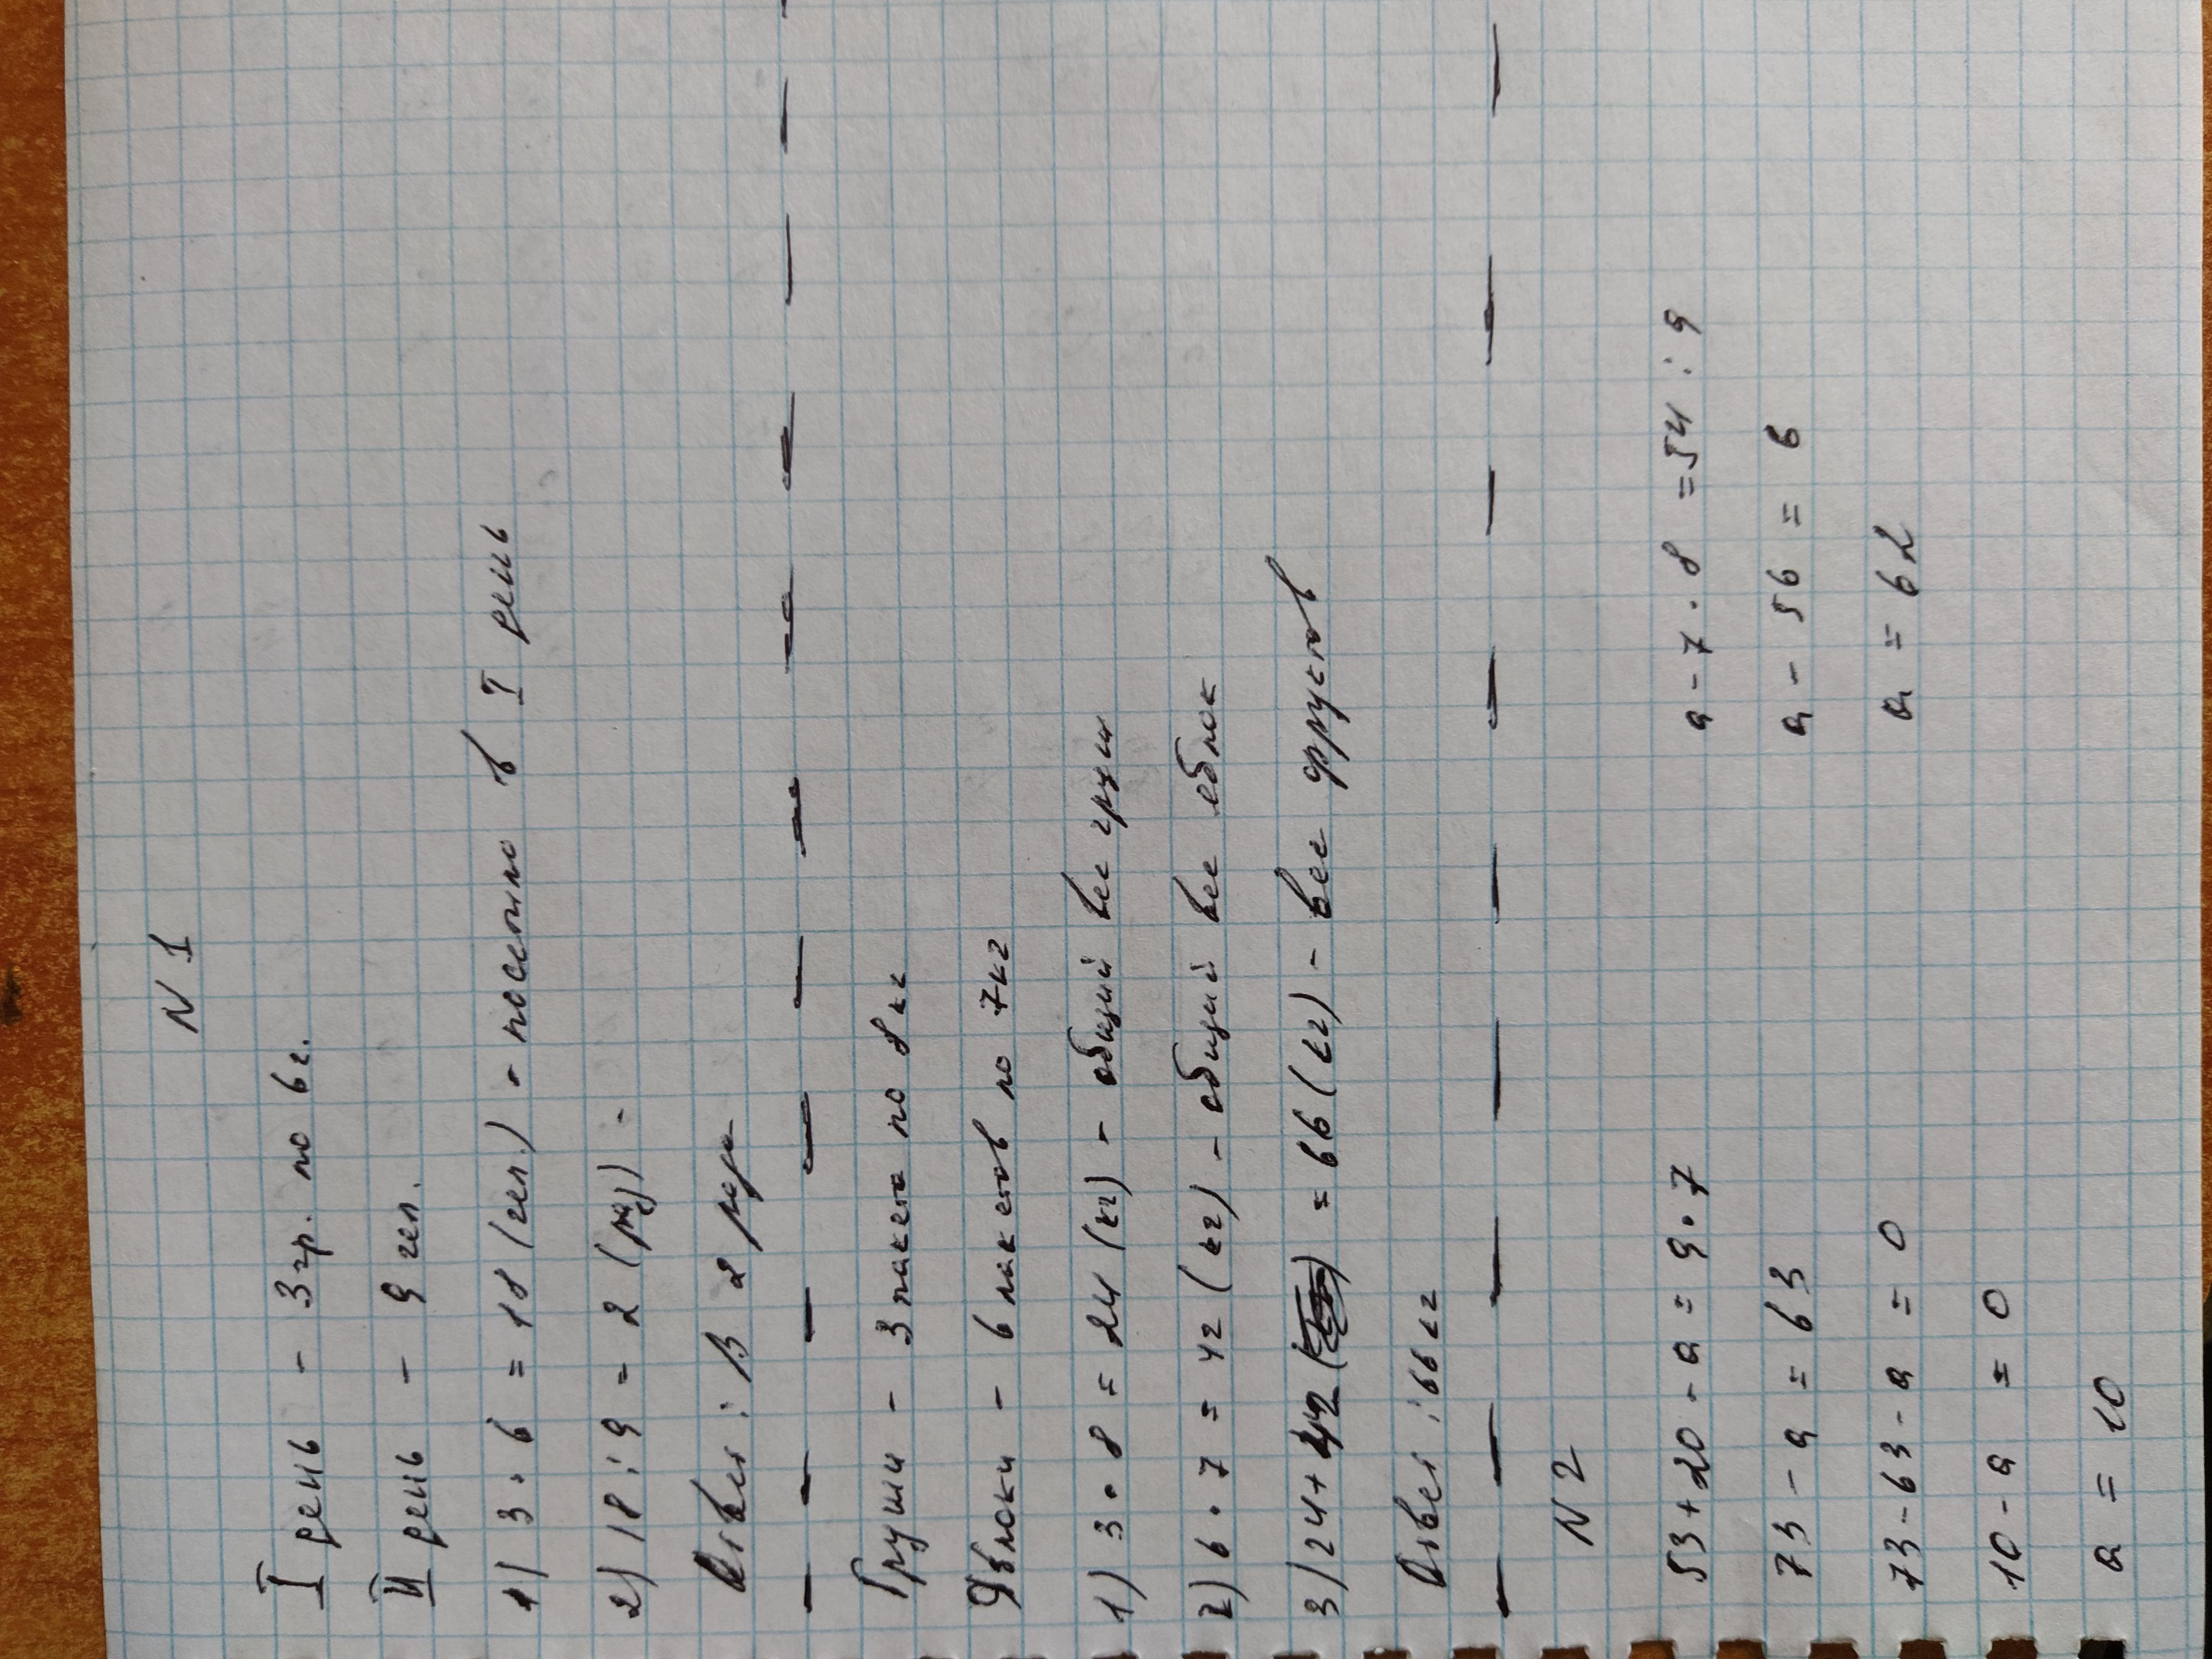 N 1
I день - 3 гр. по 6 ч.
II день - 9 чел.
1) 3 · 6 = 18 (чел.) - посетило в I день
2) 18 : 9 = 2 (раз) -
Ответ : В 2 раза
Груши - 3 пакета по 8 кг
Яблоки - 6 пакетов по 7 кг
1) 3 · 8 = 24 (кг) - общий вес груш
2) 6 · 7 = 42 (кг) - общий вес яблок
3) 24 + 42 = 66 (кг) - вес фруктов
Ответ : 66 кг
N 2
53 + 20 - a = 9 · 7 a - 7 · 8 = 54 : 9
73 - a = 63 a - 56 = 6
73 - 63 - a = 0 a = 62
10 - a = 0
a = 10